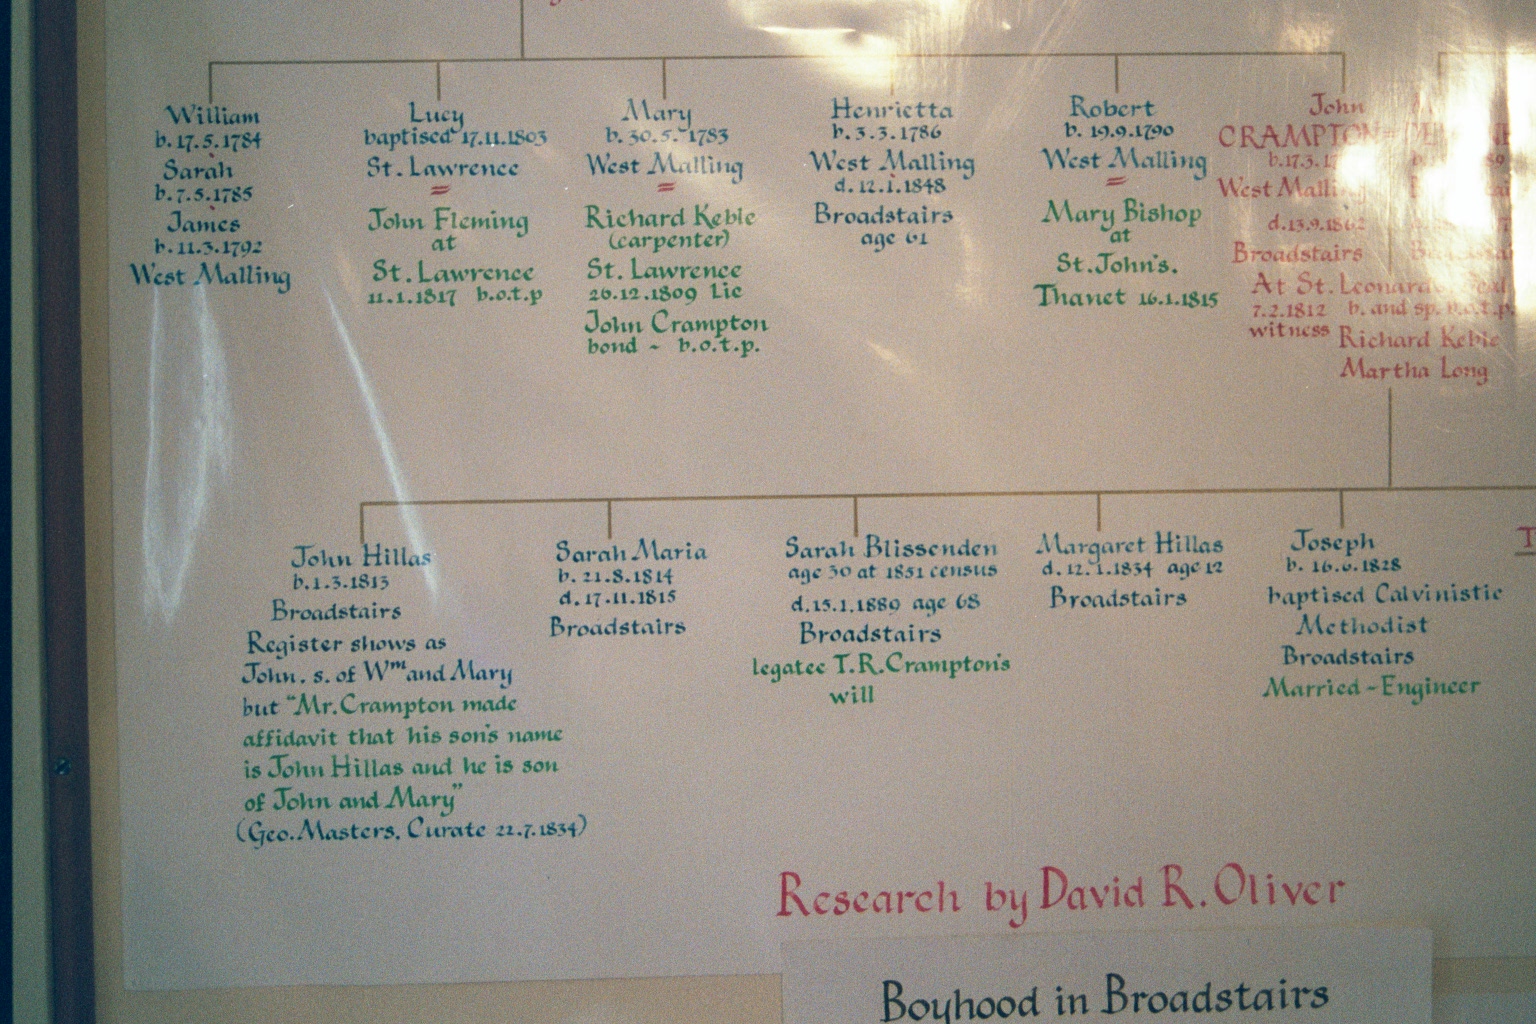 William
b. 17.5.1784
Sarah
b. 7.5.1785
James
b. 11.3.1792
West Malling
Lucy
baptised 17.11.1803
St. Lawrence
=
John Fleming
at
St. Lawrence
11.1.1817 b.o.t.p
Mary
b. 30.5.1783
West Malling
=
Richard Keble
(carpenter)
St. Lawrence
26.12.1809 Lic
John Crampton
bond ~ b.o.t.p.
Henrietta
b. 3.3.1786
West Malling
d. 12.1.1848
Broadstairs
age 61
Robert
b. 19.9.1790
West Malling
=
Mary Bishop
at
St. John's.
Thanet 16.1.1815
John
CRAMPTON =
b. 17.3.
West Malling
d. 13.9.1862
Broadstairs
At St. Leonard
7.2.1812 b. and sp. b.o.t.p.
witness Richard Keble
Martha Long
John Hillas
b. 1.3.1813
Broadstairs
Register shows as
John. s. of Wm and Mary
but "Mr. Crampton made
affidavit that his son's name
is John Hillas and he is son
of John and Mary"
(Geo. Masters. Curate 22.7.1834)
Sarah Maria
b. 21.8.1814
d. 17.11.1815
Broadstairs
Sarah Blissenden
age 30 at 1851 census
d. 15.1.1889 age 68
Broadstairs
legatee T.R. Crampton's
will
Margaret Hillas
d. 12.1.1834 age 12
Broadstairs
Joseph
b. 16.6.1828
baptised Calvinistic
Methodist
Broadstairs
Married - Engineer
Research by David R. Oliver
Boyhood in Broadstairs